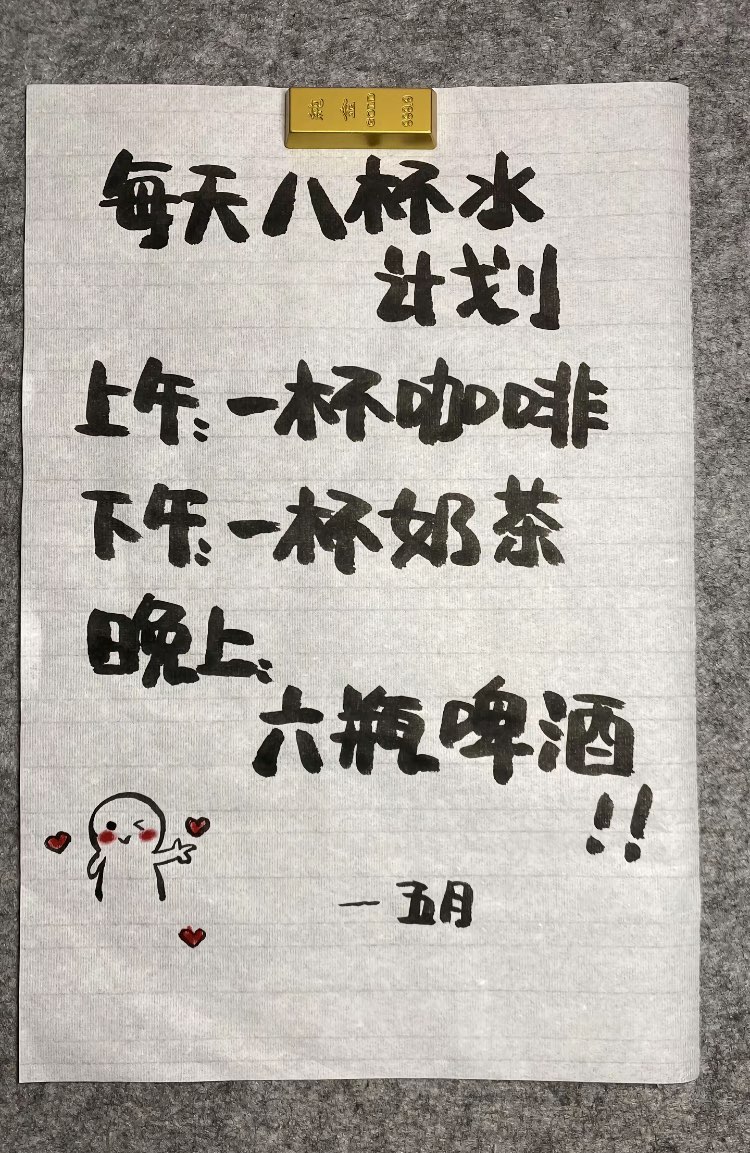 纯金 GOLD 999.9
每天八杯水
计划
上午:一杯咖啡
下午:一杯奶茶
晚上:
六瓶啤酒
!!
一五月